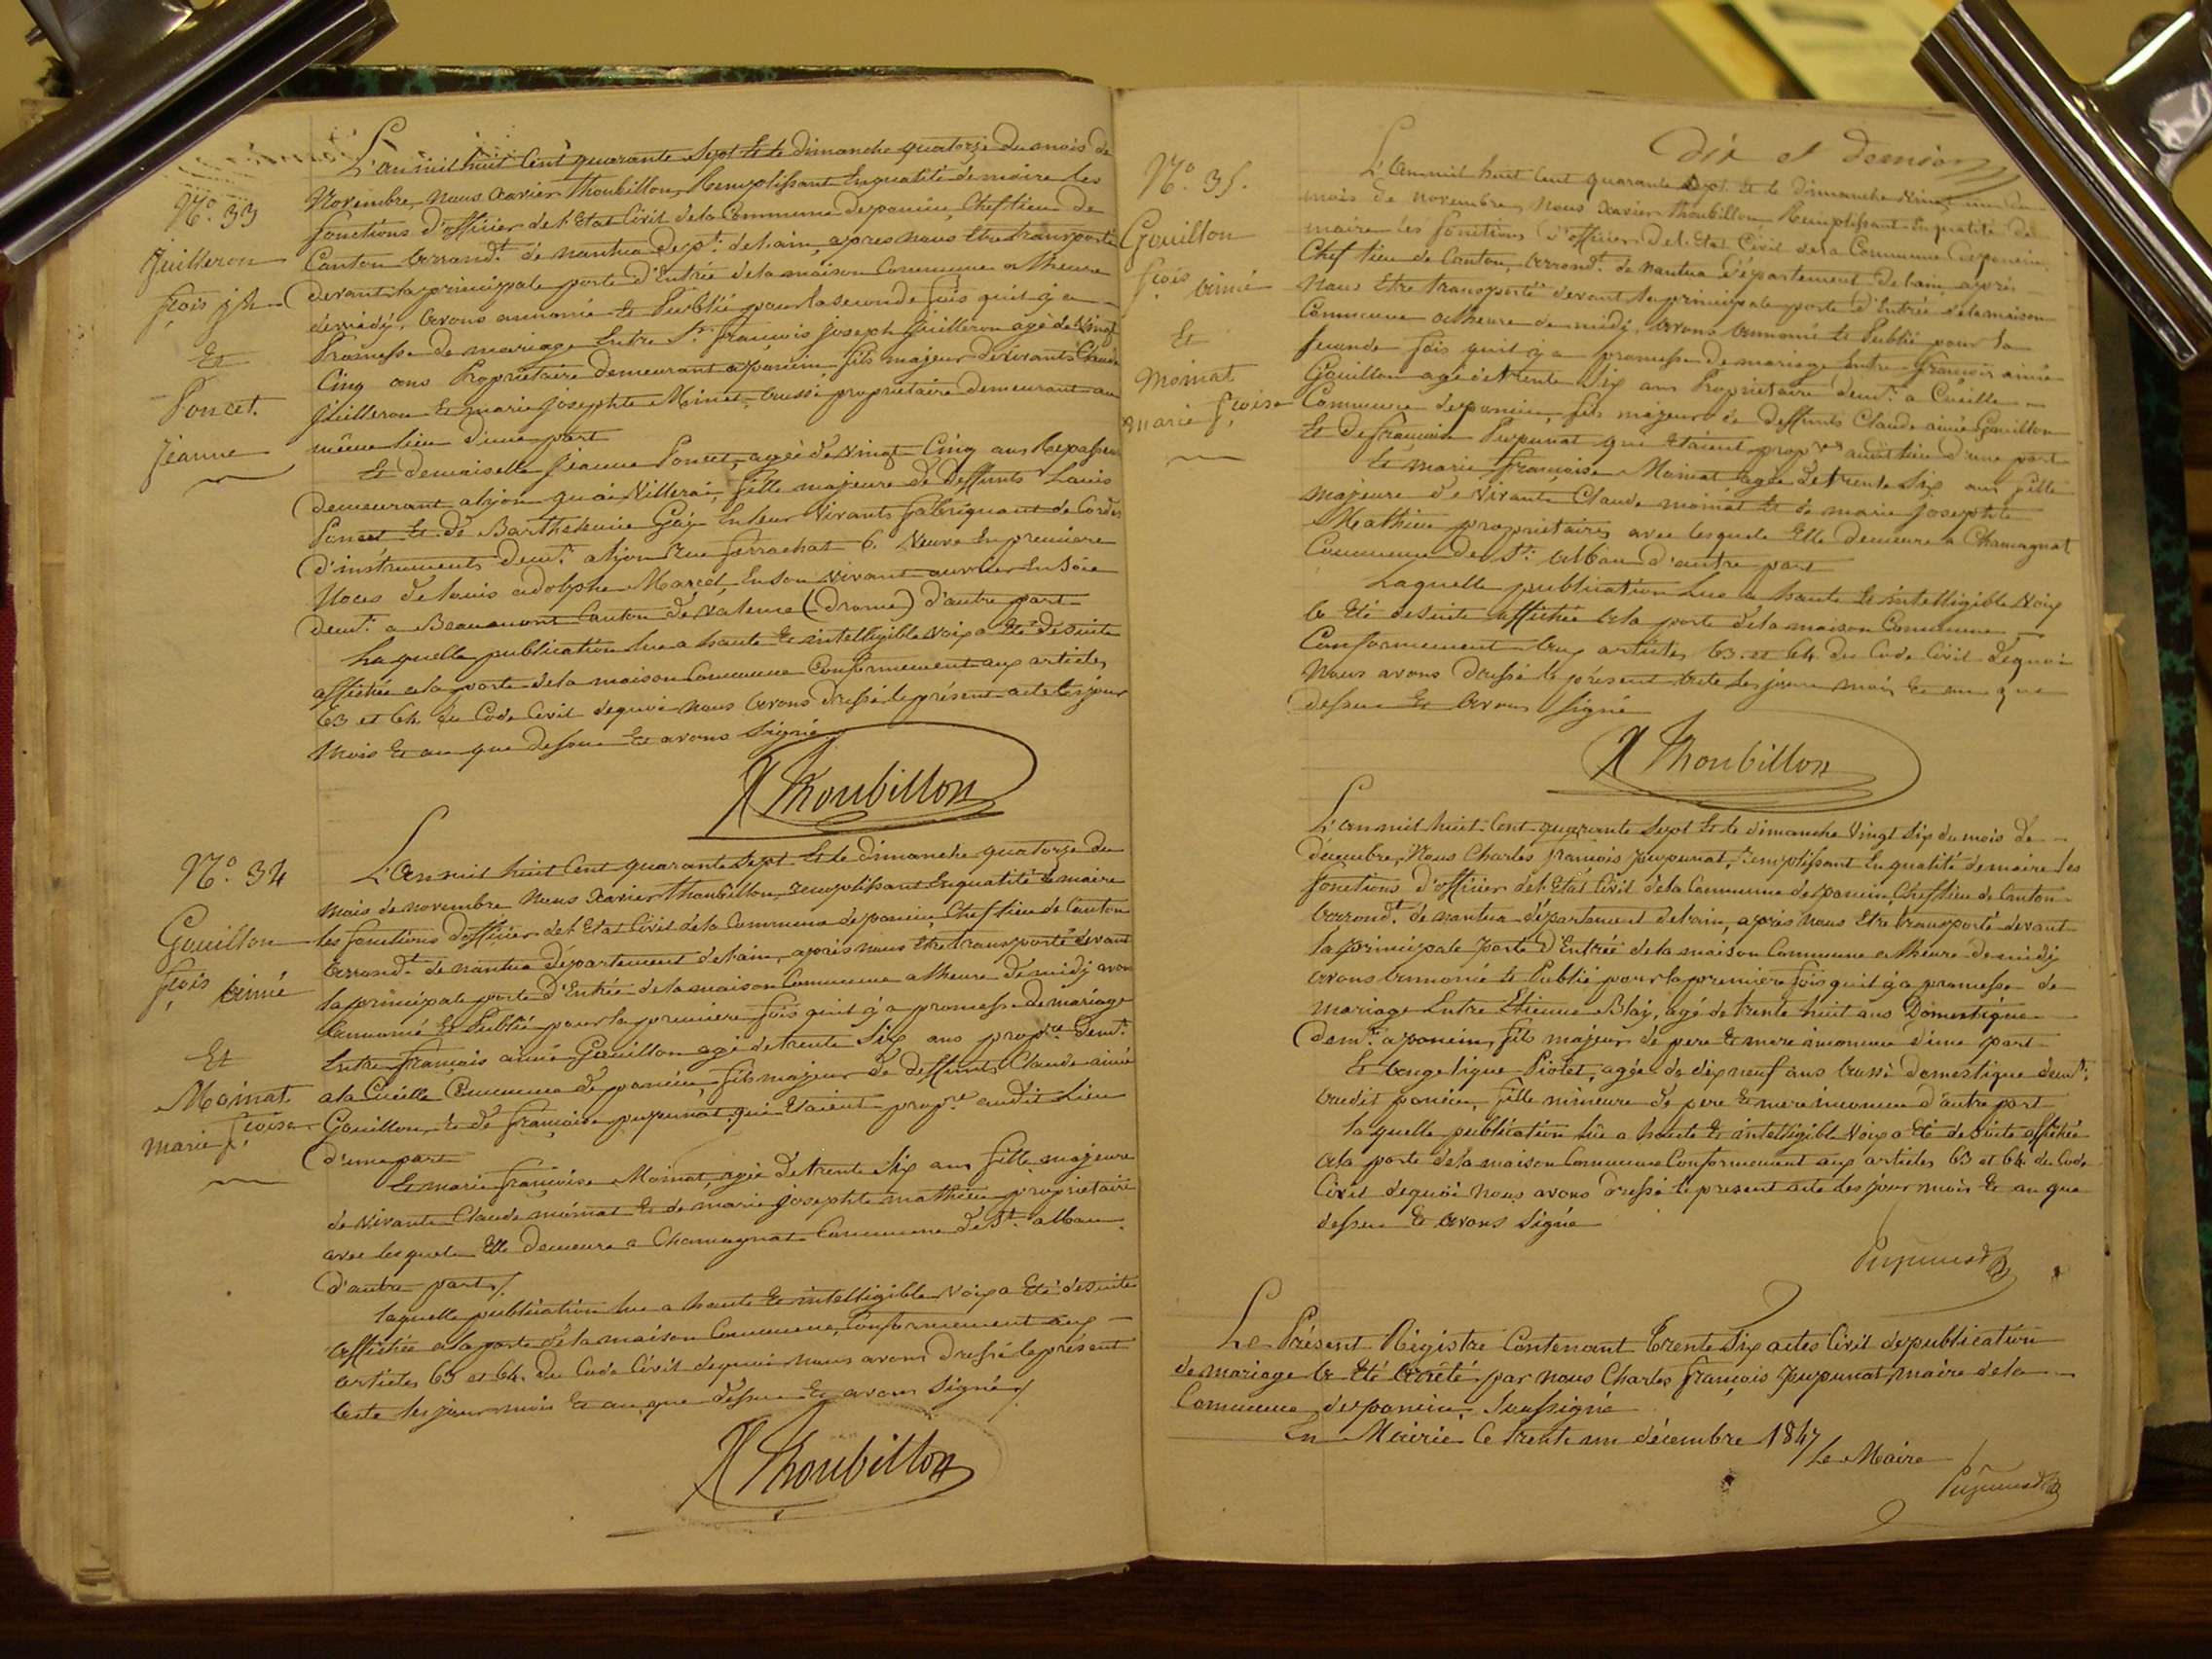 N.º 33
Juilleron
fçois jph
Et
Poncet
Jeanne
L'an mil huit Cent quarante Sept Et le dimanche quatorze du mois de
Novembre, Nous Xavier Thoubillon, Remplissant Enqualité de maire les
fonctions d'officier del'Etat Civil dela Commune deponcin, Cheflieu de
Canton Arrond.t de nantua Dep.t delain, apres nous Etre transporté
devant la principale porte d'Entrée dela maison Commune a lheure
demidy, avons annoncé Et Publié pour la seconde fois quil y a
Promesse de mariage Entre S.r francois joseph Juilleron agé de Vingt
Cinq ans Propriétaire demeurant a poncin fils majeur de vivants Claude
Juilleron Et marie Josephte Minet, aussi propriétaire demeurant au
même lieu d'une part
Et demoiselle Jeanne Poncet, agée de Vingt Cinq ans Repasseuse
demeurant a lyon quai Villeroi, fille majeure de deffunts Louis
Poncet Et de Barthelemie Gay Enleur Vivants fabriquant de Cordes
d'instruments dem.t a lyon Rue ferrachat 6. Veuve En premiere
Noces de louis adolphe Marcel, Enson Vivant ouvrier En Soie
dem.t a Beaumont Canton de Valence (Drome) d'autre part
Laquelle publication lue a haute Et intelligible voix a Eté desuite
affichée ala porte dela maison Commune Conformement aux articles
63 et 64 du Code Civil dequoi nous avons dressé le présent acte les jour
Mois Et an que dessus Et avons Signé
X Thoubillon
N.º 34
Gouillon
fçois Aimé
Et
Moinat
marie fçoise
L'an mil huit Cent quarante Sept Et le dimanche quatorze du
mois de novembre Nous Xavier Thoubillon, remplissant Enqualité de maire
les fonctions d'officier del'Etat Civil dela Commune deponcin, Cheflieu de Canton
Arrond.t de nantua Département delain, après nous Etre transporté devant
la principale porte d'Entrée dela maison Commune a lheure de midy avons
annoncé Et Publié pour la premiere fois quil y a promesse de mariage
Entre françois aimé Gouillon agé de trente Six ans prop.re dem.t
a la Cueille Commune de poncin, fils majeur de deffunts Claude aimé
Gouillon, Et de françoise pupunat qui Etaient prop.re audit Lieu
d'une part
Et marie françoise Moinat, agée de trente Six ans fille majeure
de vivants Claude moinat Et de marie josephte mathieu propriétaire
avec lesquels Elle demeure a Chamagnat Commune de S.t alban
d'autre part/
laquelle publication lue a haute Et intelligible voix a Eté desuite
affichée ala porte dela maison Commune, Conformement aux
articles 63 et 64 du Code Civil dequoi nous avons dressé le présent
acte les jour mois Et an que dessus Et avons signé/
X Thoubillon
Dix et dernier
N.º 35.
Gouillon
fçois aimé
Et
Moinat
marie fçoise
L'an mil huit Cent quarante Sept Et le dimanche Vingt un du
mois de novembre, Nous Xavier Thoubillon Remplissant Enqualité de
maire les fonctions d'officier del'Etat Civil dela Commune deponcin,
Chef lieu de Canton, Arrond.t de nantua Département delain, après
Nous Etre transporté devant la principale porte d'Entrée dela maison
Commune a lheure de midy, avons annoncé Et Publié pour la
seconde fois quil y a promesse de mariage Entre françois aimé
Gouillon agé de trente Six ans Propriétaire dem.t a Cueille
Commune deponcin, fils majeur de deffunts Claude aimé Gouillon
Et de françoise Pupunat qui Etaient prop.res audit lieu d'une part
Et marie françoise Moinat agée de trente Six ans fille
majeure de vivants Claude moinat Et de marie josephte
Mathieu propriétaires avec lesquels Elle demeure a Chamagnat
Commune de S.t Alban d'autre part
Laquelle publication Lue a haute Et intelligible Voix
a Eté desuite affichée ala porte dela maison Commune
Conformement aux articles 63 et 64 du Code Civil dequoi
Nous avons dressé le présent acte les jour mois Et an que
dessus Et avons signé
X Thoubillon
L'an mil huit Cent quarante Sept Et le dimanche Vingt Six du mois de
decembre, Nous Charles françois pupunat, remplissant Enqualité de maire les
fonctions d'officier del'Etat Civil dela Commune deponcin, Cheflieu de Canton
Arrond.t de nantua département delain, après nous Etre transporté devant
la principale porte d'Entrée dela maison Commune a lheure de midy
avons annoncé Et Publié pour la premiere fois quil y a promesse de
mariage Entre Etienne Blay, agé de trente huit ans Domestique
dem.t a poncin, fils majeur de pere Et mere inconnus d'une part
Et Angelique Piolet, agée de dix neuf ans aussi domestique dem.t
audit poncin, fille mineure de pere Et mere inconnus d'autre part
laquelle publication lüe a haute Et intelligible Voix a Eté desuite affichée
ala porte dela maison Commune Conformement aux articles 63 et 64 du Code
Civil dequoi nous avons dressé le present acte les jour mois Et an que
dessus Et avons signé
Pupunat
Le Présent Régistre Contenant trente Six actes Civil depublication
de mariage a Eté arrêté par nous Charles françois Pupunat, maire dela
Commune, deponcin, Soussigné
En Mairie Ce trente un décembre 1847
Le Maire
Pupunat